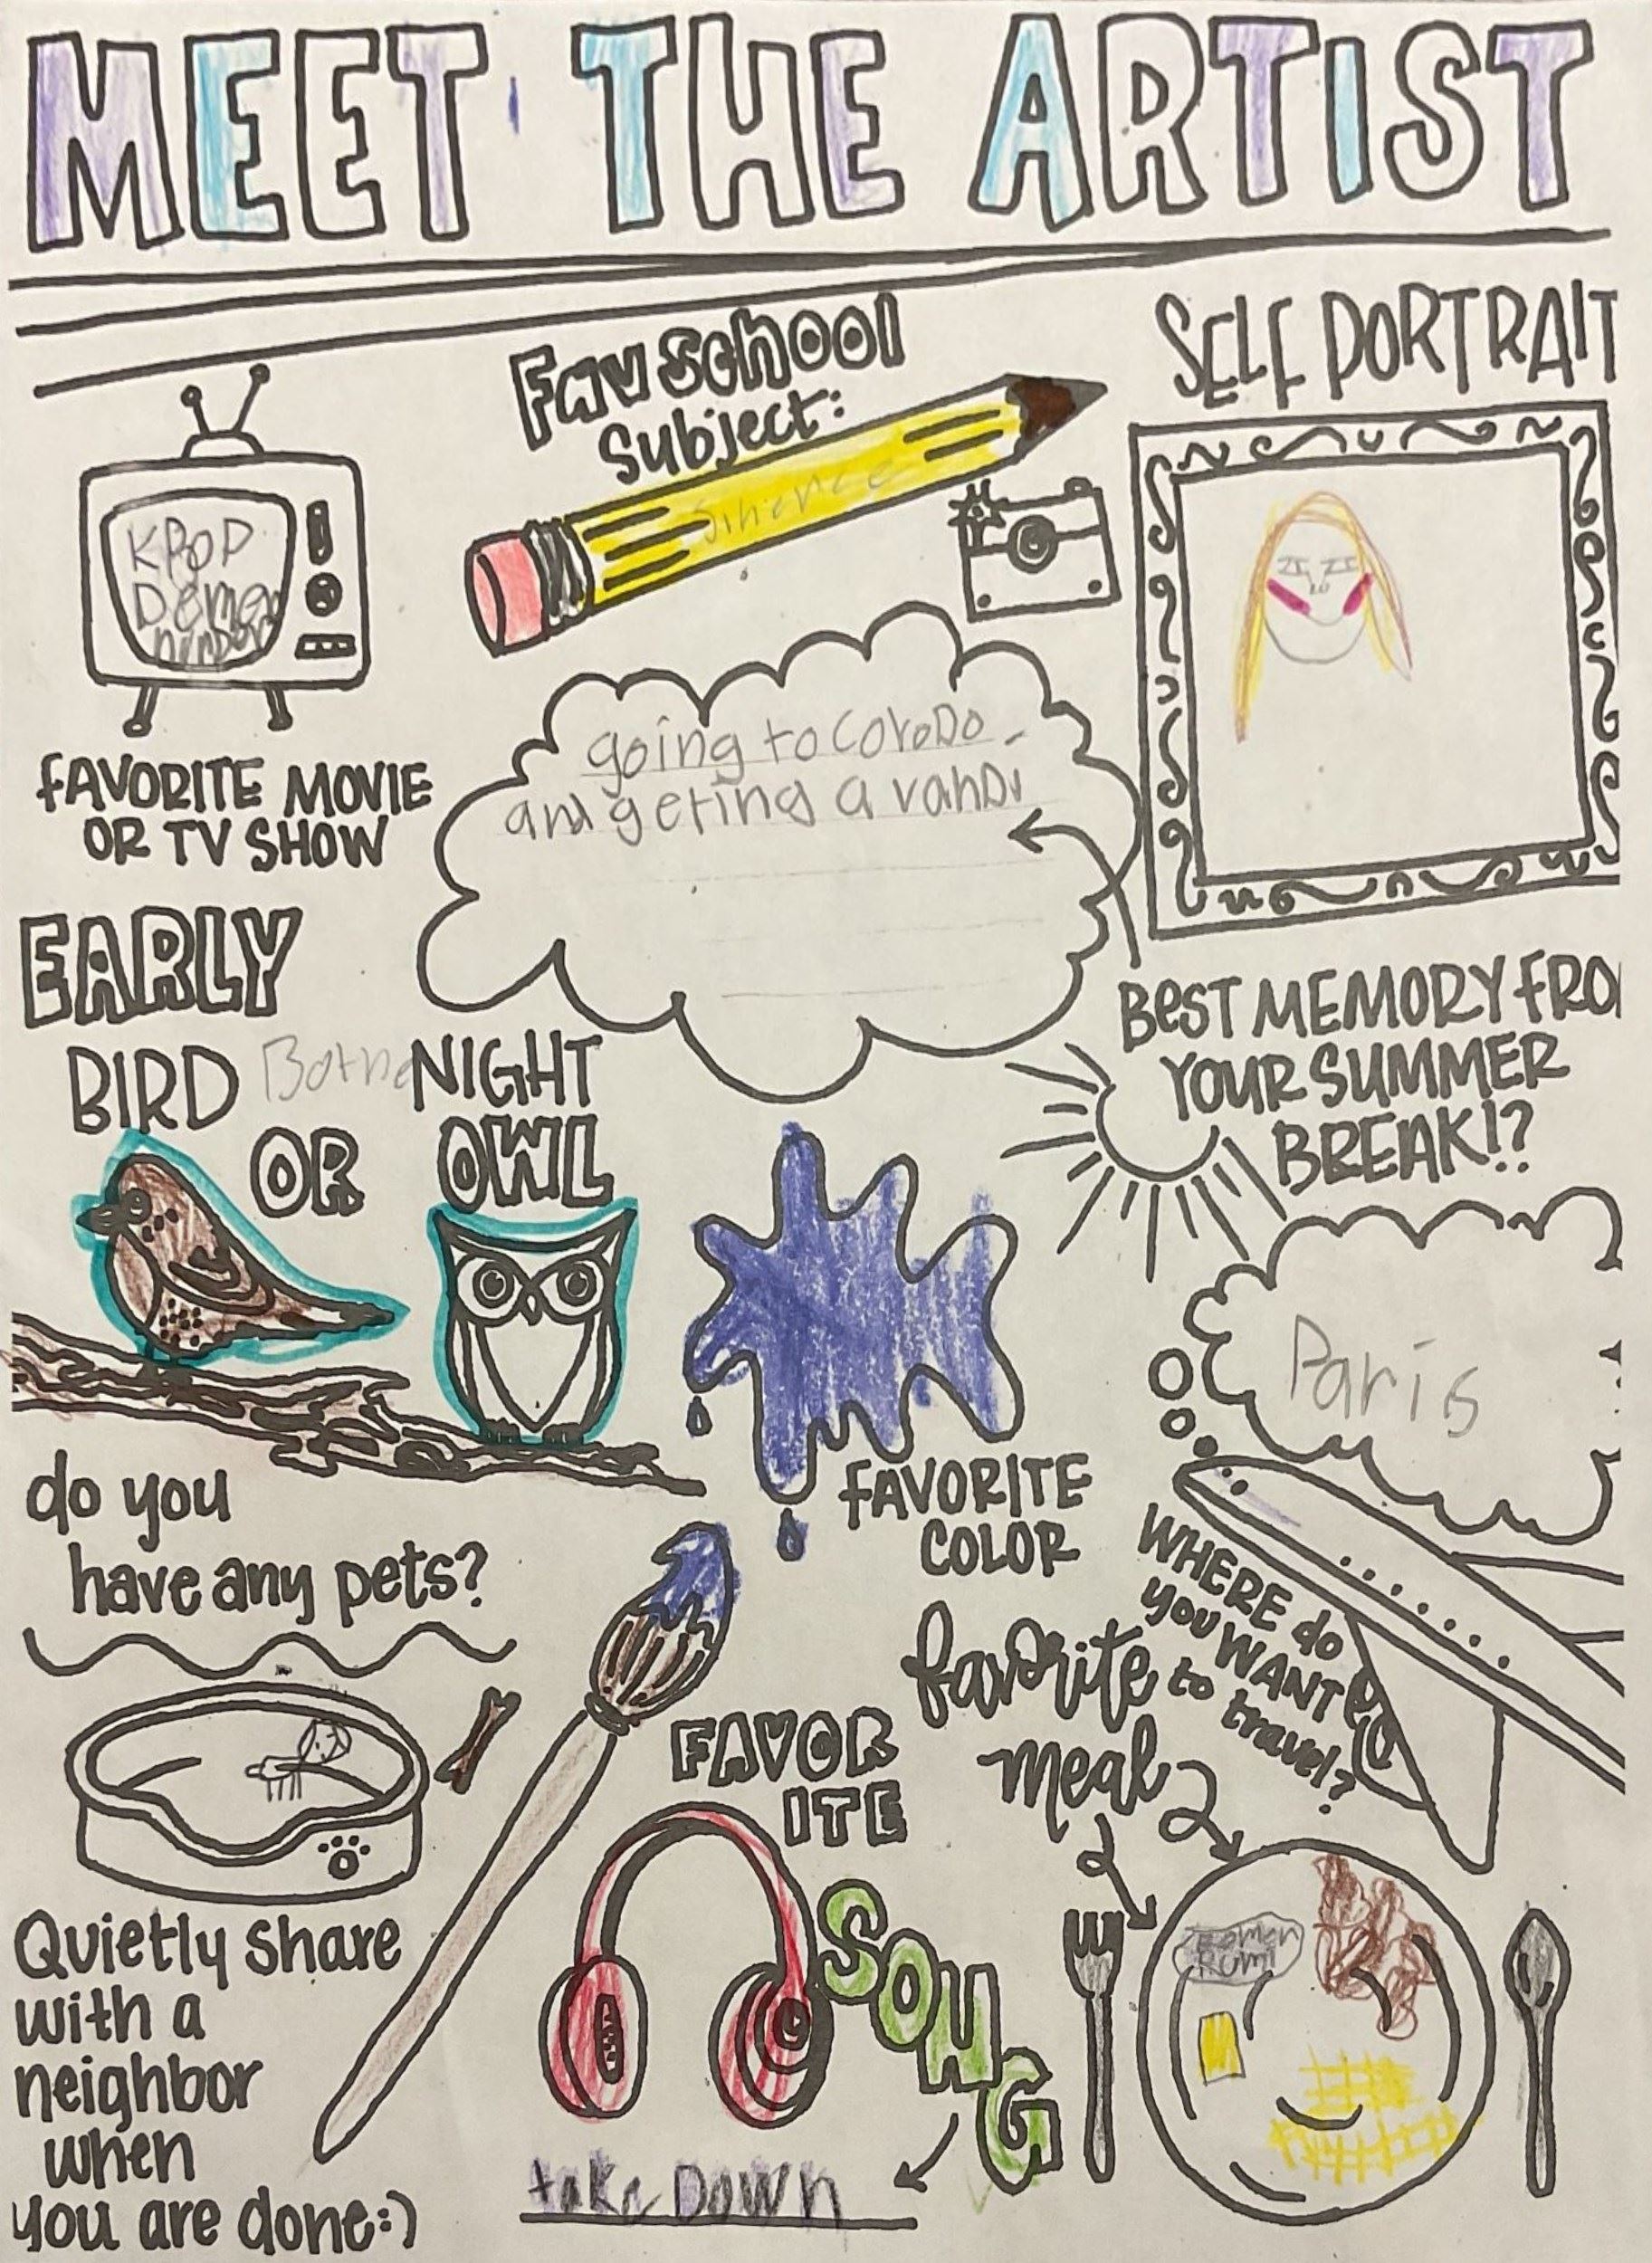 MEET THE ARTIST
Fav School
Subject:
Sinence
SELF PORTRAIT
KPOP
Demon
FAVORITE MOVIE
OR TV SHOW
going to coroDo
and geting a vanDi
BEST MEMORY FRO
YOUR SUMMER
BREAK!?
EARLY
BIRD
Bothe
OR
NIGHT
OWL
FAVORITE
COLOR
Paris
WHERE do
you WANT
to
travel?
do you
have any pets?
favorite
meal
FAVOR
ITE
SONG
take Down
Rumi
Quietly share
with a
neighbor
when
you are done:)